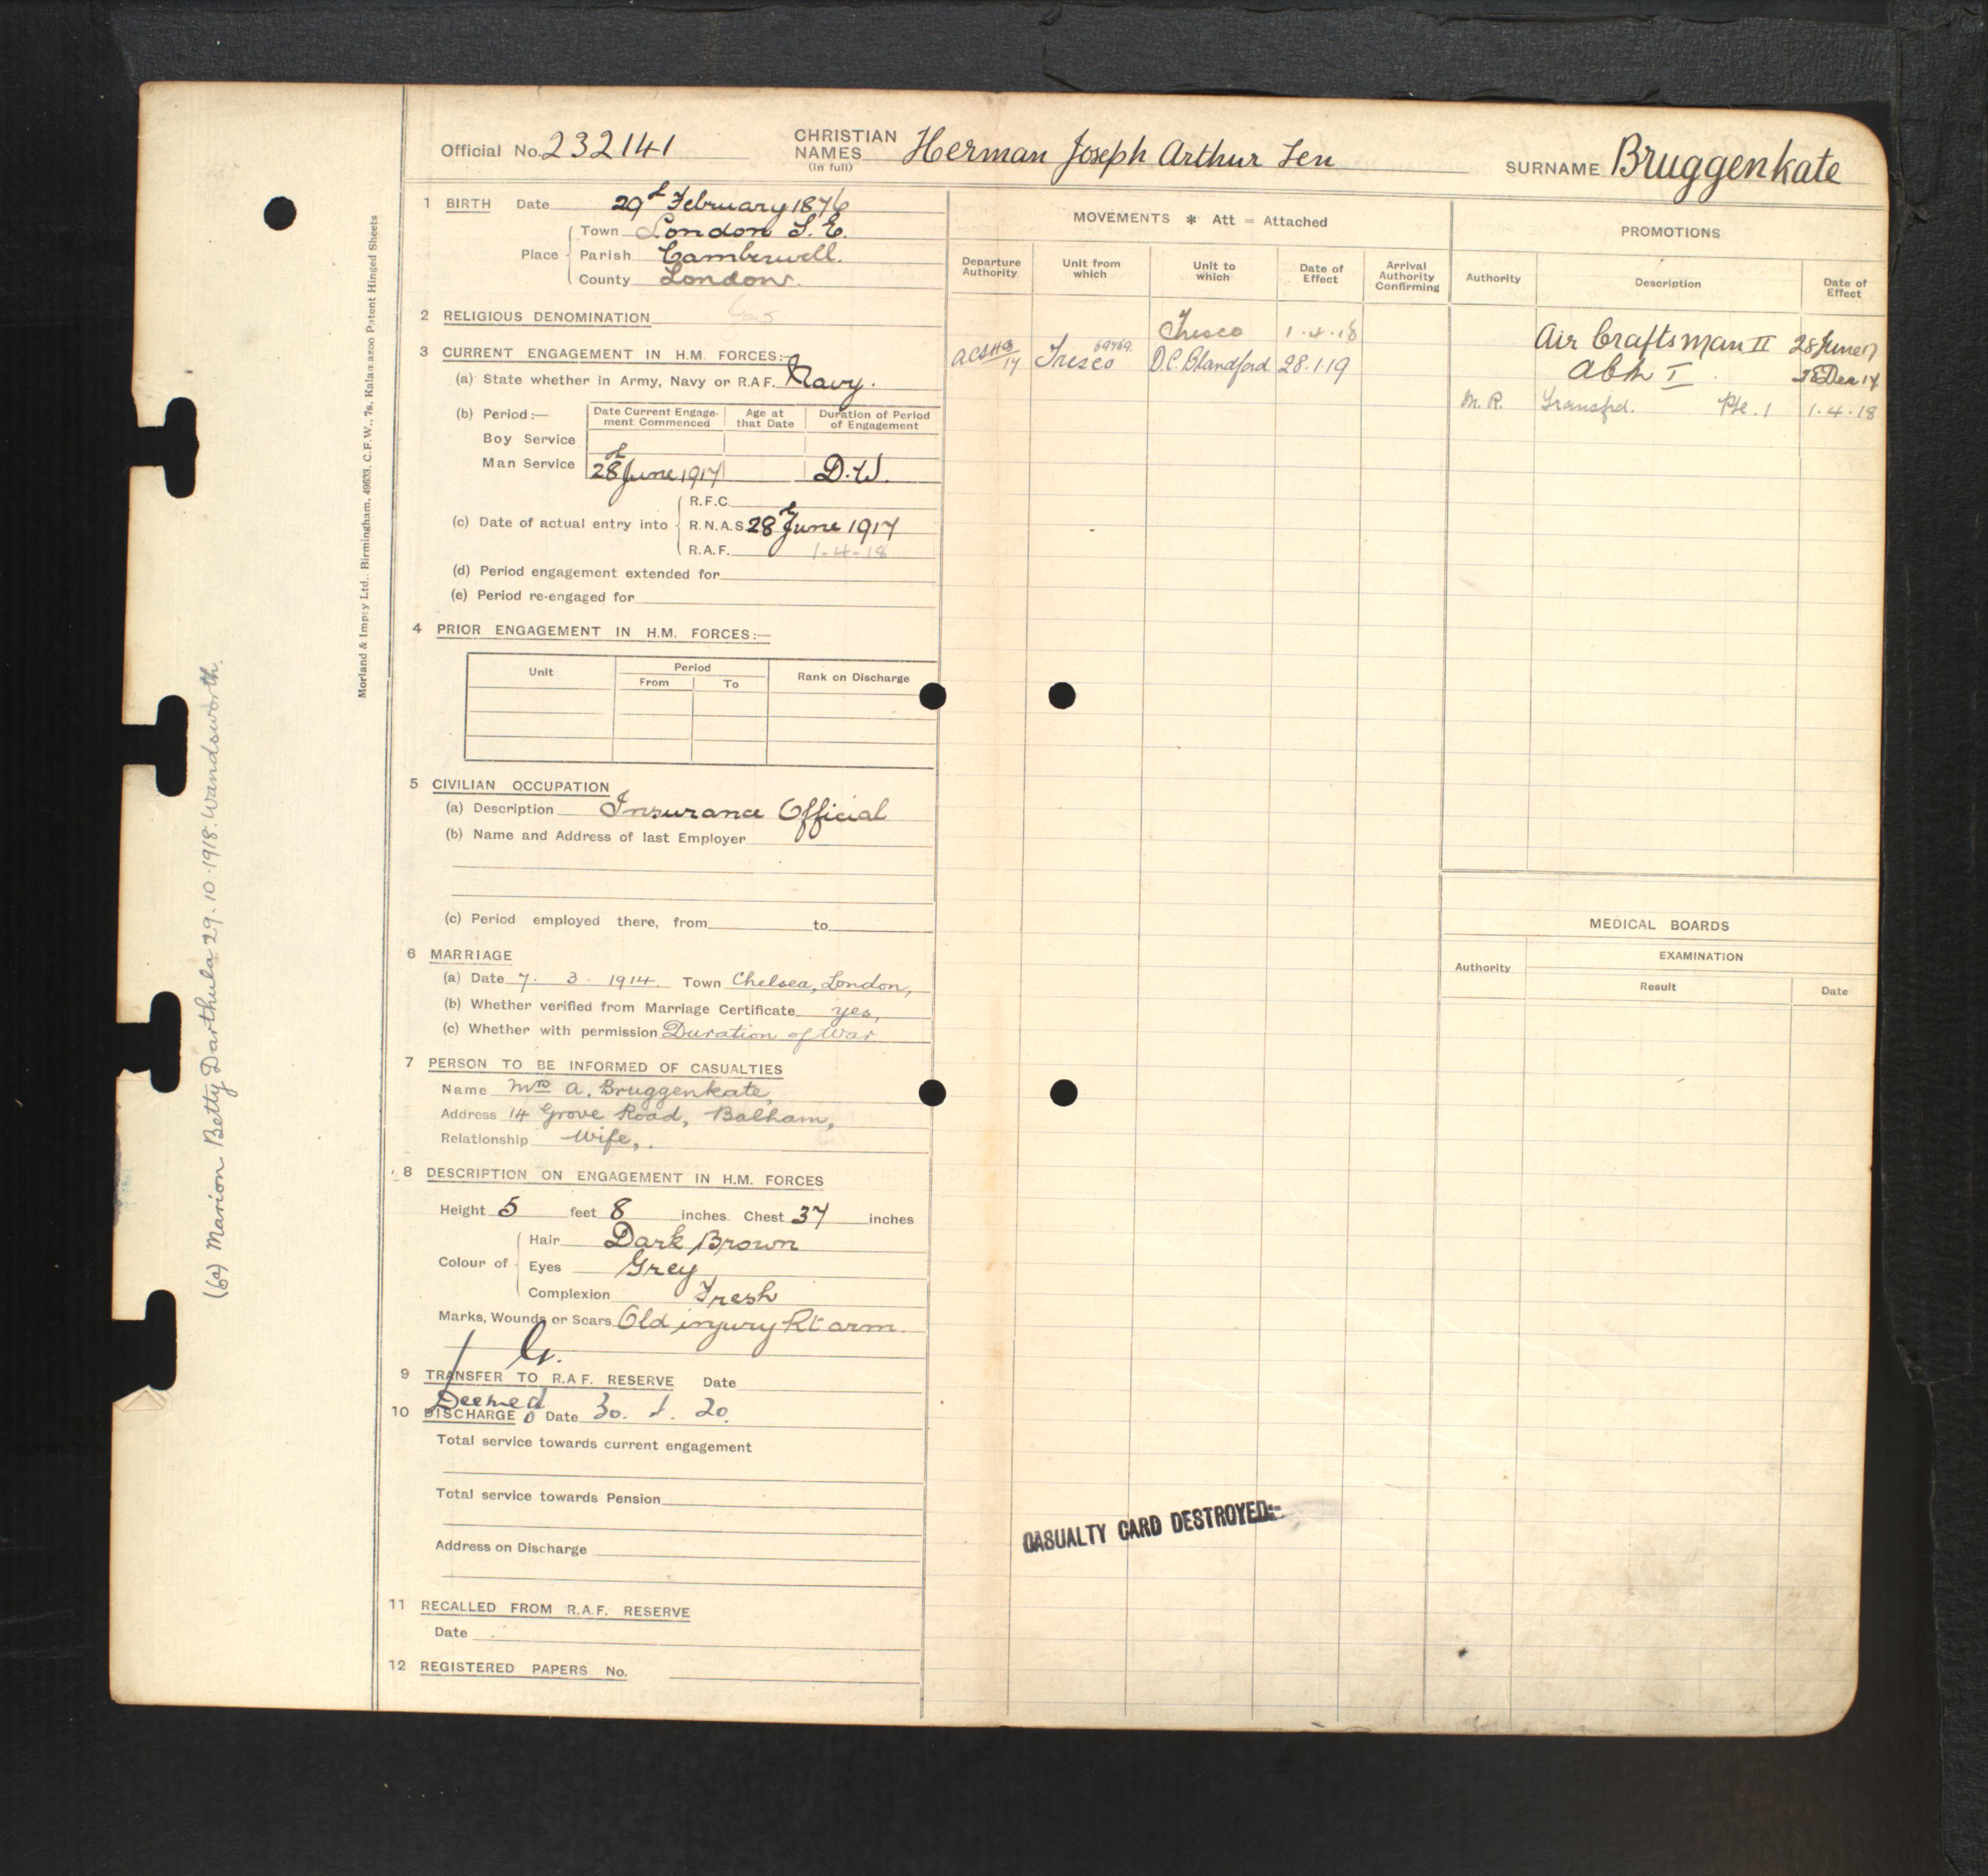 Official No. 232141 CHRISTIAN NAMES (in full) Herman Joseph Arthur Ten SURNAME Bruggenkate
1 BIRTH Date 29th February 1876
Place Town London S.E.
Parish Camberwell.
County London.
2 RELIGIOUS DENOMINATION
3 CURRENT ENGAGEMENT IN H.M. FORCES:—
(a) State whether in Army, Navy or R.A.F. Navy.
(b) Period:— Date Current Engagement Commenced Age at that Date Duration of Period of Engagement
Boy Service
Man Service 28th June 1917 D.W.
(c) Date of actual entry into R.F.C.
R.N.A.S. 28th June 1917
R.A.F. 1-4-18
(d) Period engagement extended for
(e) Period re-engaged for
4 PRIOR ENGAGEMENT IN H.M. FORCES:—
Unit Period Rank on Discharge
From To
5 CIVILIAN OCCUPATION
(a) Description Insurance Official
(b) Name and Address of last Employer
(c) Period employed there, from to
6 MARRIAGE
(a) Date 7. 3. 1914. Town Chelsea, London,
(b) Whether verified from Marriage Certificate yes,
(c) Whether with permission Duration of War
7 PERSON TO BE INFORMED OF CASUALTIES
Name Mrs A. Bruggenkate,
Address 14 Grove Road, Balham,
Relationship Wife,.
8 DESCRIPTION ON ENGAGEMENT IN H.M. FORCES
Height 5 feet 8 inches Chest 37 inches
Colour of Hair Dark Brown
Eyes Grey
Complexion Fresh
Marks, Wounds or Scars Old injury Rt arm.
G.
9 TRANSFER TO R.A.F. RESERVE Date
Deemed
10 DISCHARGED Date 30. 1. 20.
Total service towards current engagement
Total service towards Pension
Address on Discharge
11 RECALLED FROM R.A.F. RESERVE
Date
12 REGISTERED PAPERS No.
MOVEMENTS * Att = Attached
Departure Authority Unit from which Unit to which Date of Effect Arrival Authority Confirming
Tresco 1.4.18
69769.
17 Tresco D.C. Blandford 28.1.19
CASUALTY CARD DESTROYED:-
PROMOTIONS
Authority Description Date of Effect
Air Craftsman II 28 June 17
Acm I 28 Dec 17
M.R. Transfd. Pte. 1 1.4.18
MEDICAL BOARDS
Authority EXAMINATION
Result Date
Morland & Impey Ltd., Birmingham. 49633, C.F.W., 7s, Kalamazoo Patent Hinged Sheets
(6a) Marion Betty Darthula 29.10.1918. Wandsworth.